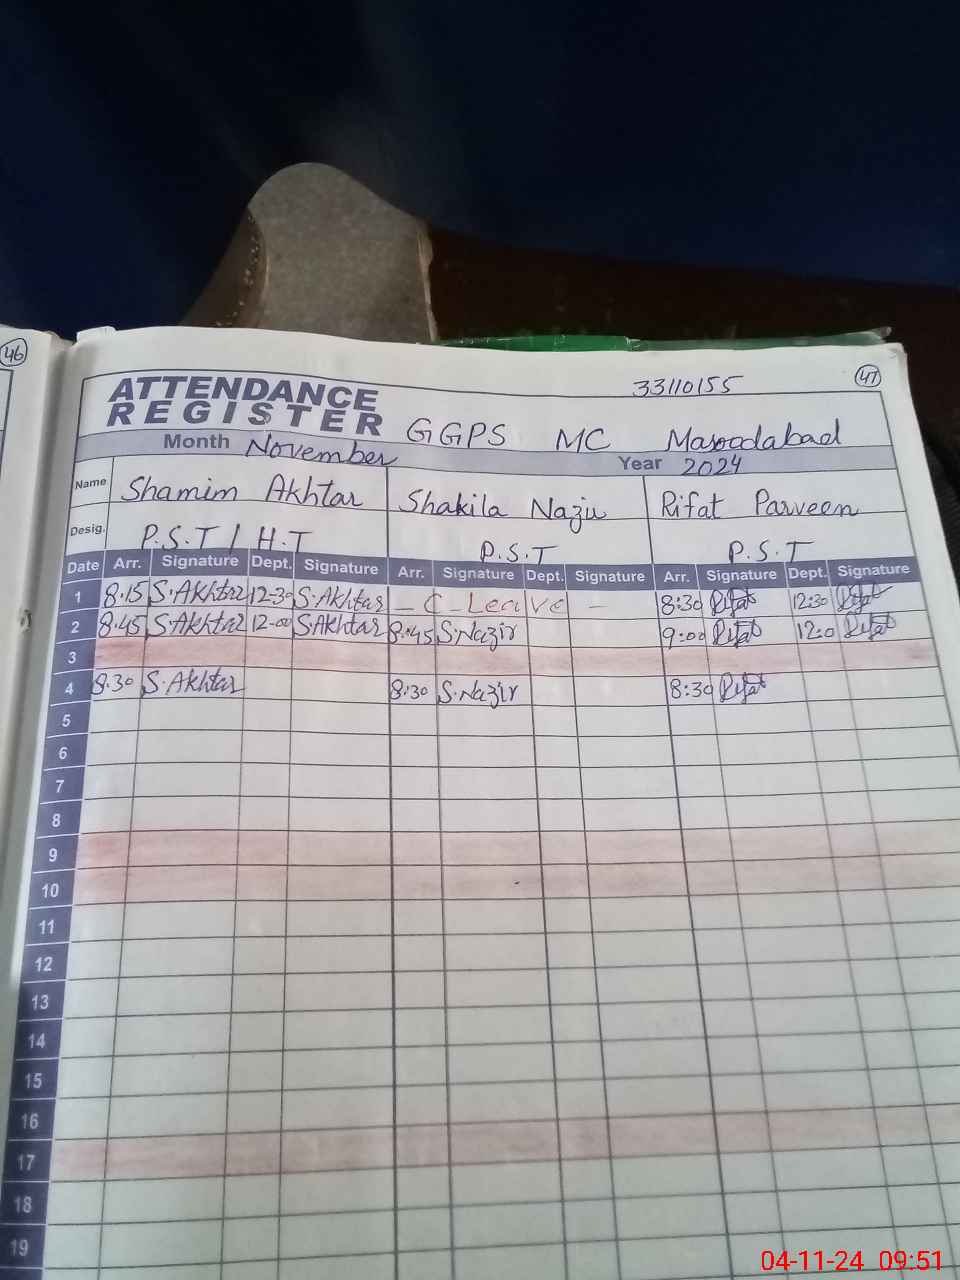 46
47
33110155
ATTENDANCE
REGISTER
GGPS MC Masoodabad
Month November Year 2024
Name Shamim Akhtar Shakila Nazir Rifat Parveen
Desig. P.S.T / H.T P.S.T P.S.T
Date Arr. Signature Dept. Signature Arr. Signature Dept. Signature Arr. Signature Dept. Signature
1 8.15 S.Akhtar 12-30 S.Akhtar - C - Leave - 8:30 Rifat 12:30 Rifat
2 8.45 S.Akhtar 12-00 S.Akhtar 8.45 S.Nazir 9:00 Rifat 12:0 Rifat
3
4 8.30 S.Akhtar 8.30 S.Nazir 8:30 Rifat
5
6
7
8
9
10
11
12
13
14
15
16
17
18
19
04-11-24 09:51